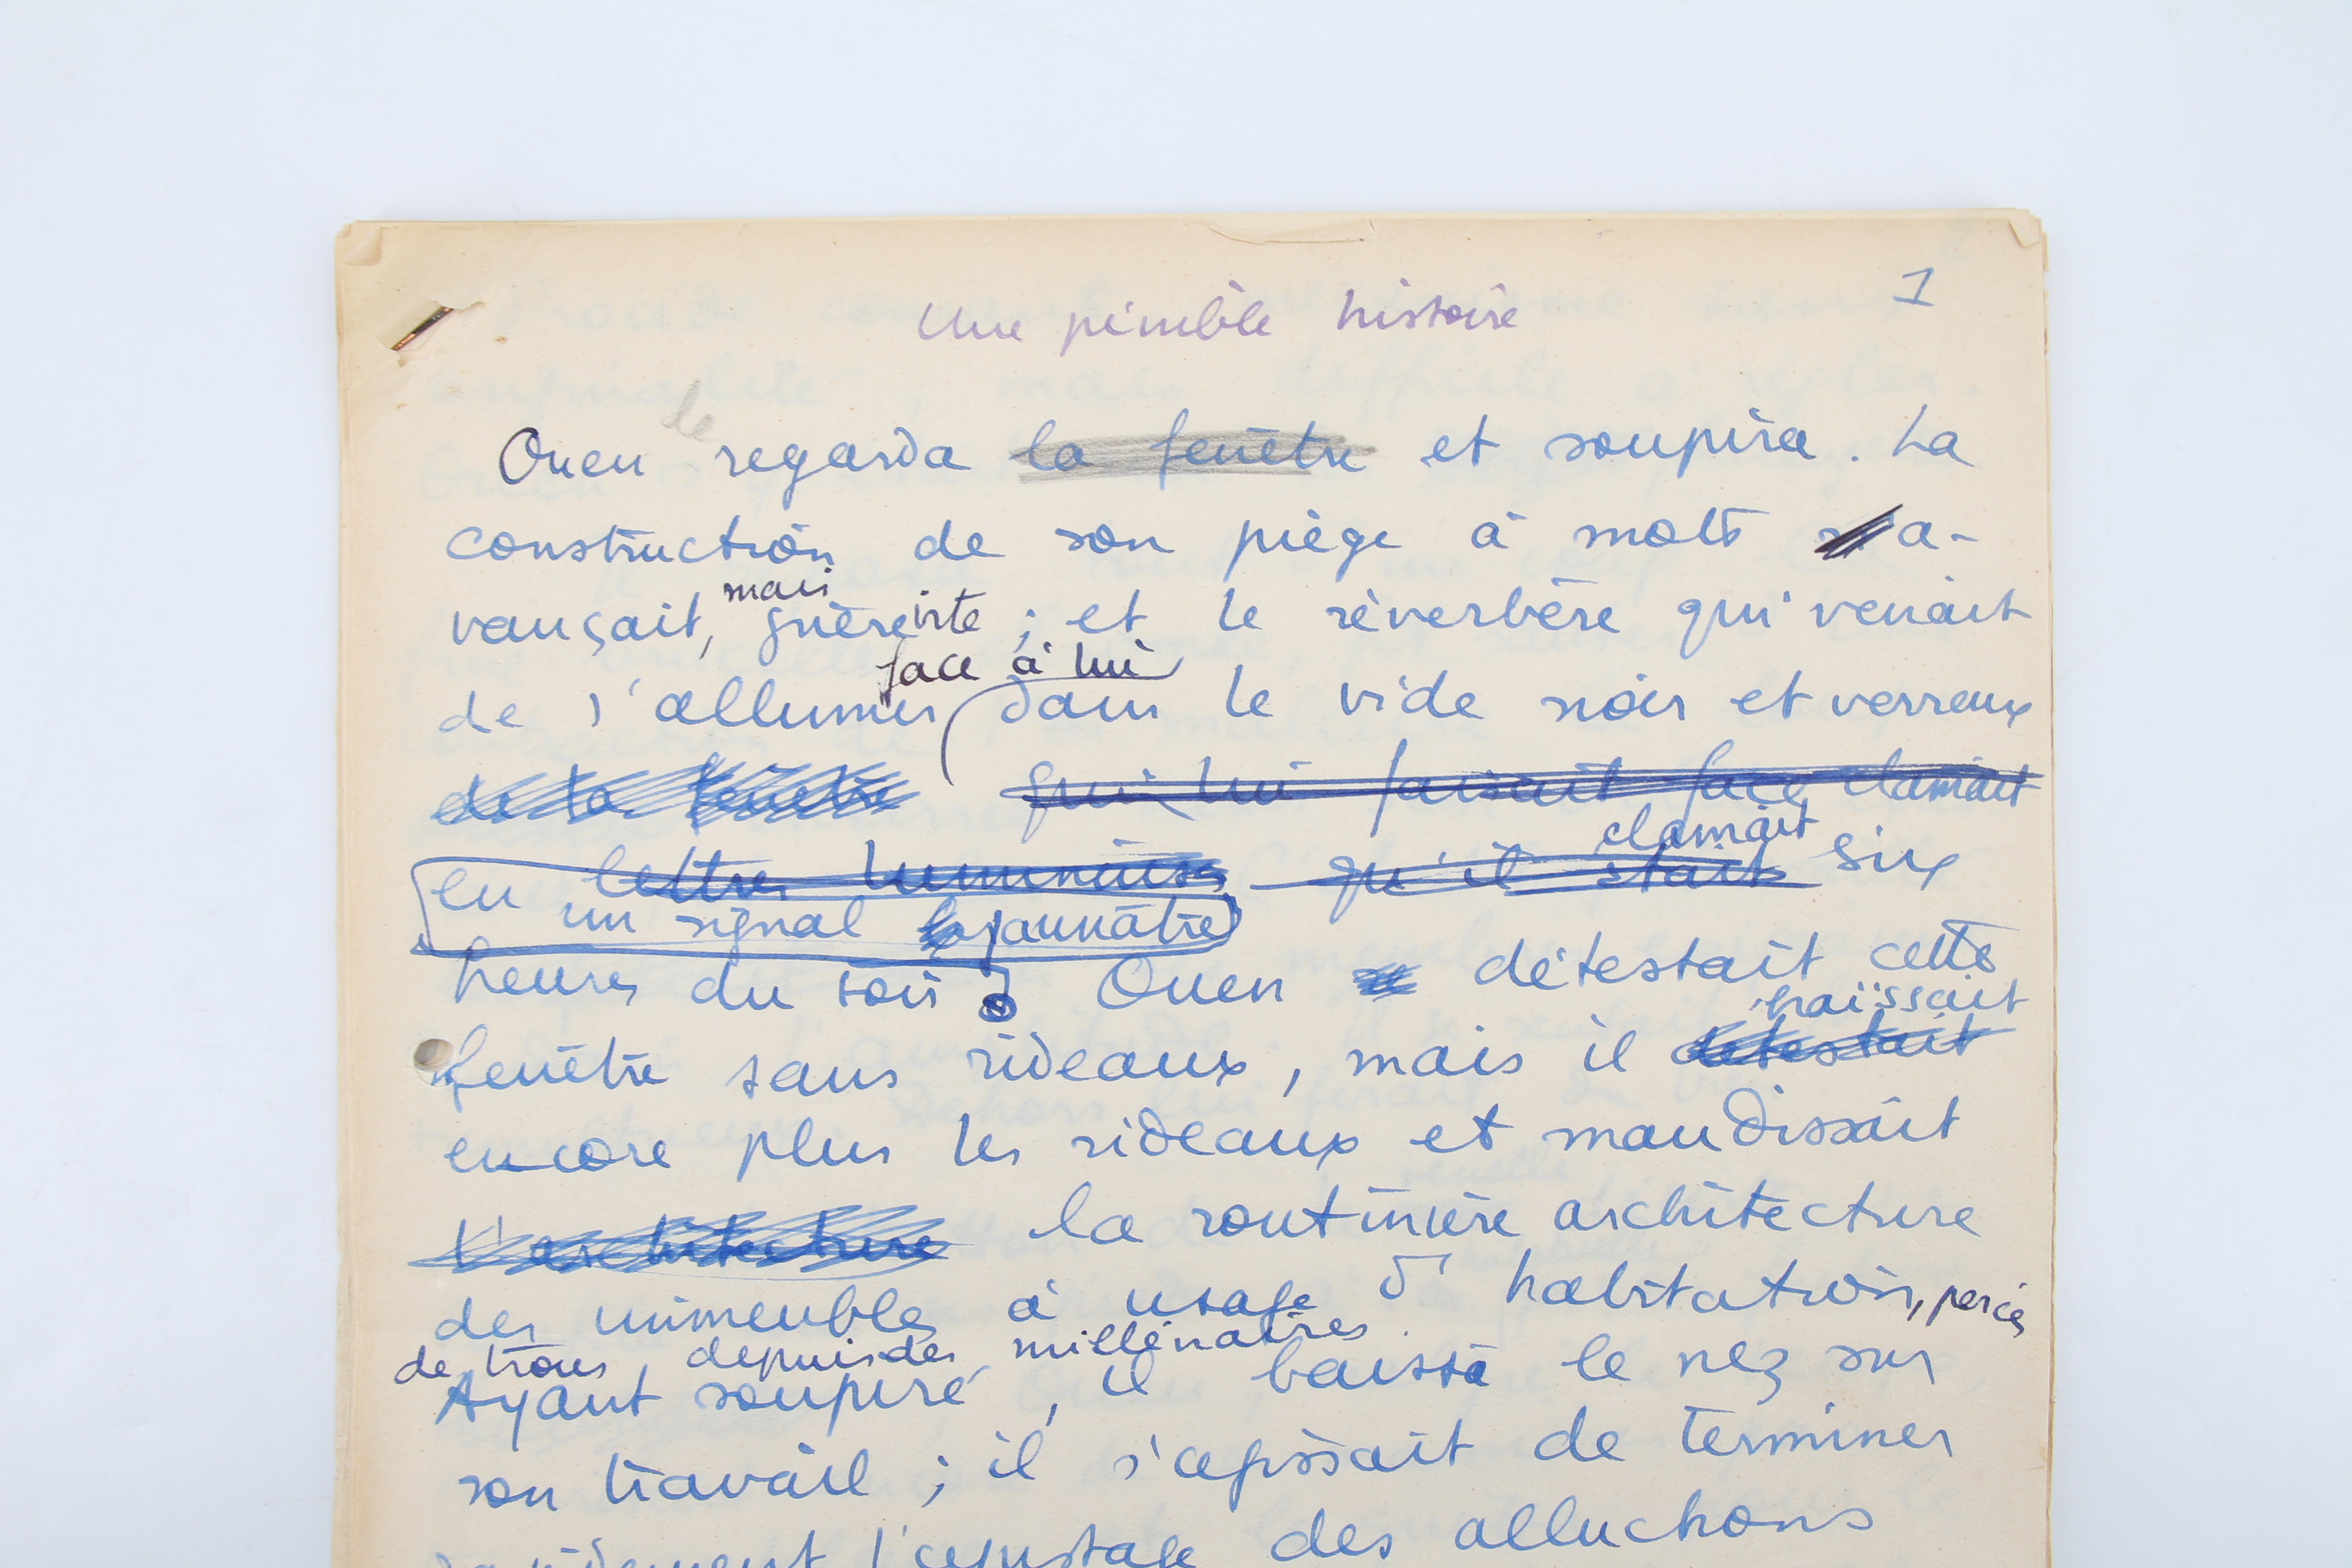 Une pénible histoire
1
le
Ouen regarda la fenêtre et soupira. La
construction de son piège à mots a-
mais
vançait, guère vite ; et le réverbère qui venait
face à lui
de s'allumer dans le vide noir et verreux
de la fenêtre qui lui faisait face clamait
clamait
en lettres lumineuses qu'il était six
un signal jaunâtre
heures du soir. Ouen détestait cette
haïssait
fenêtre sans rideaux, mais il détestait
encore plus les rideaux et maudissait
l'architecture la routinière architecture
des immeubles à usage d'habitation, percés
de trous depuis des millénaires.
Ayant soupiré, il baissa le nez sur
son travail ; il s'agissait de terminer
rapidement l'ajustage des alluchons